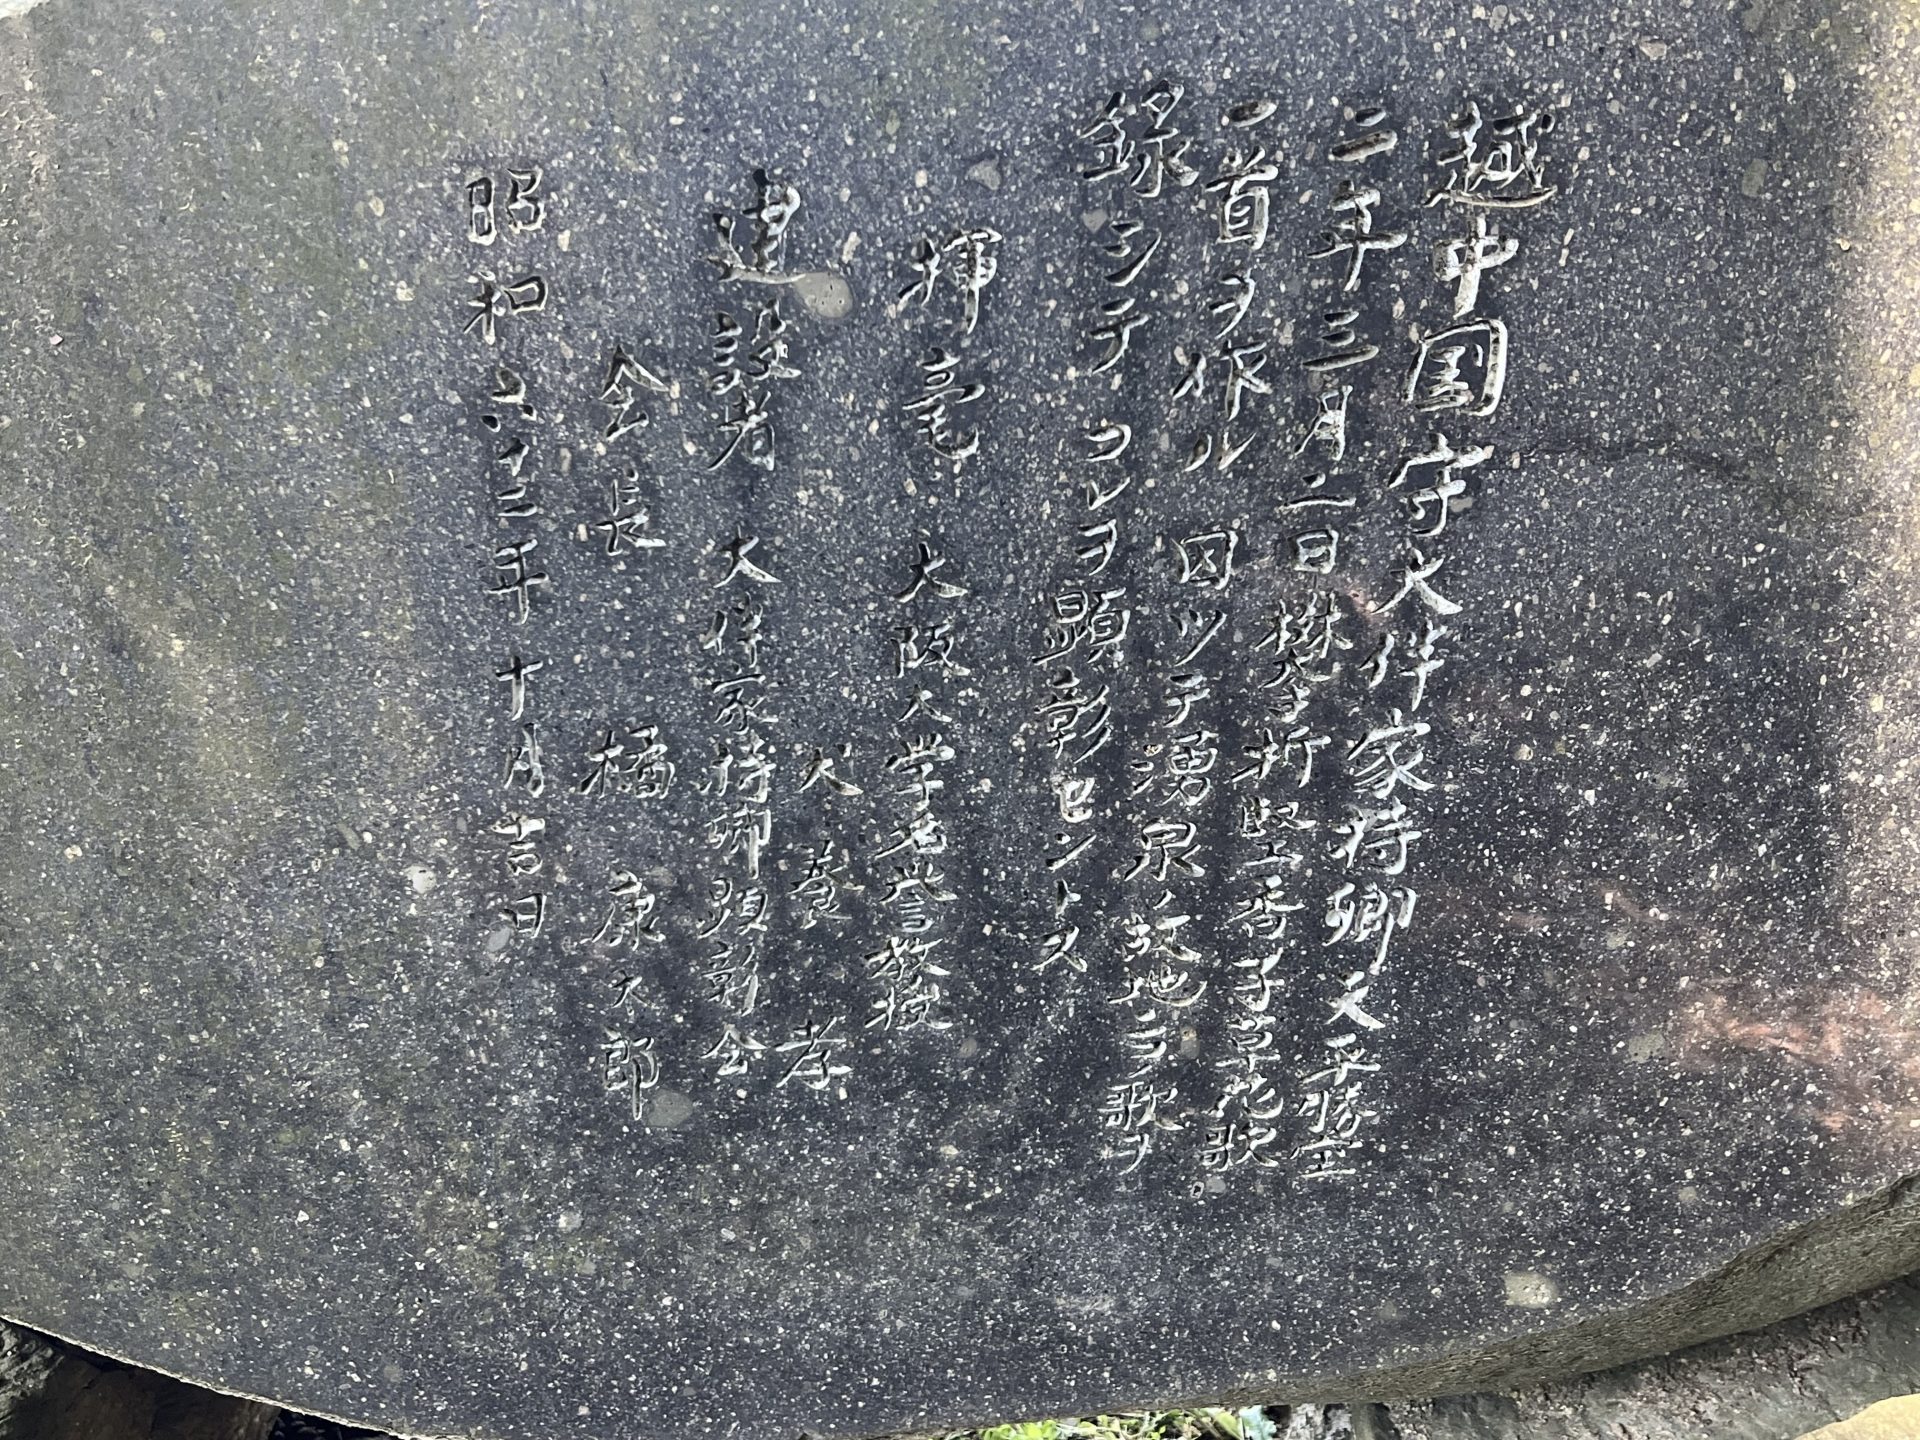 越中国守大伴家持卿天平勝宝
二年三月二日攀折堅香子草花歌
一首ヲ作ル 因ツテ湧泉ノ故地ニ歌ヲ
録シテ コレヲ顕彰セントス
揮毫 大阪大学名誉教授
犬養 孝
建設者 大伴家持卿顕彰会
会長 橘 康太郎
昭和六十三年十月吉日